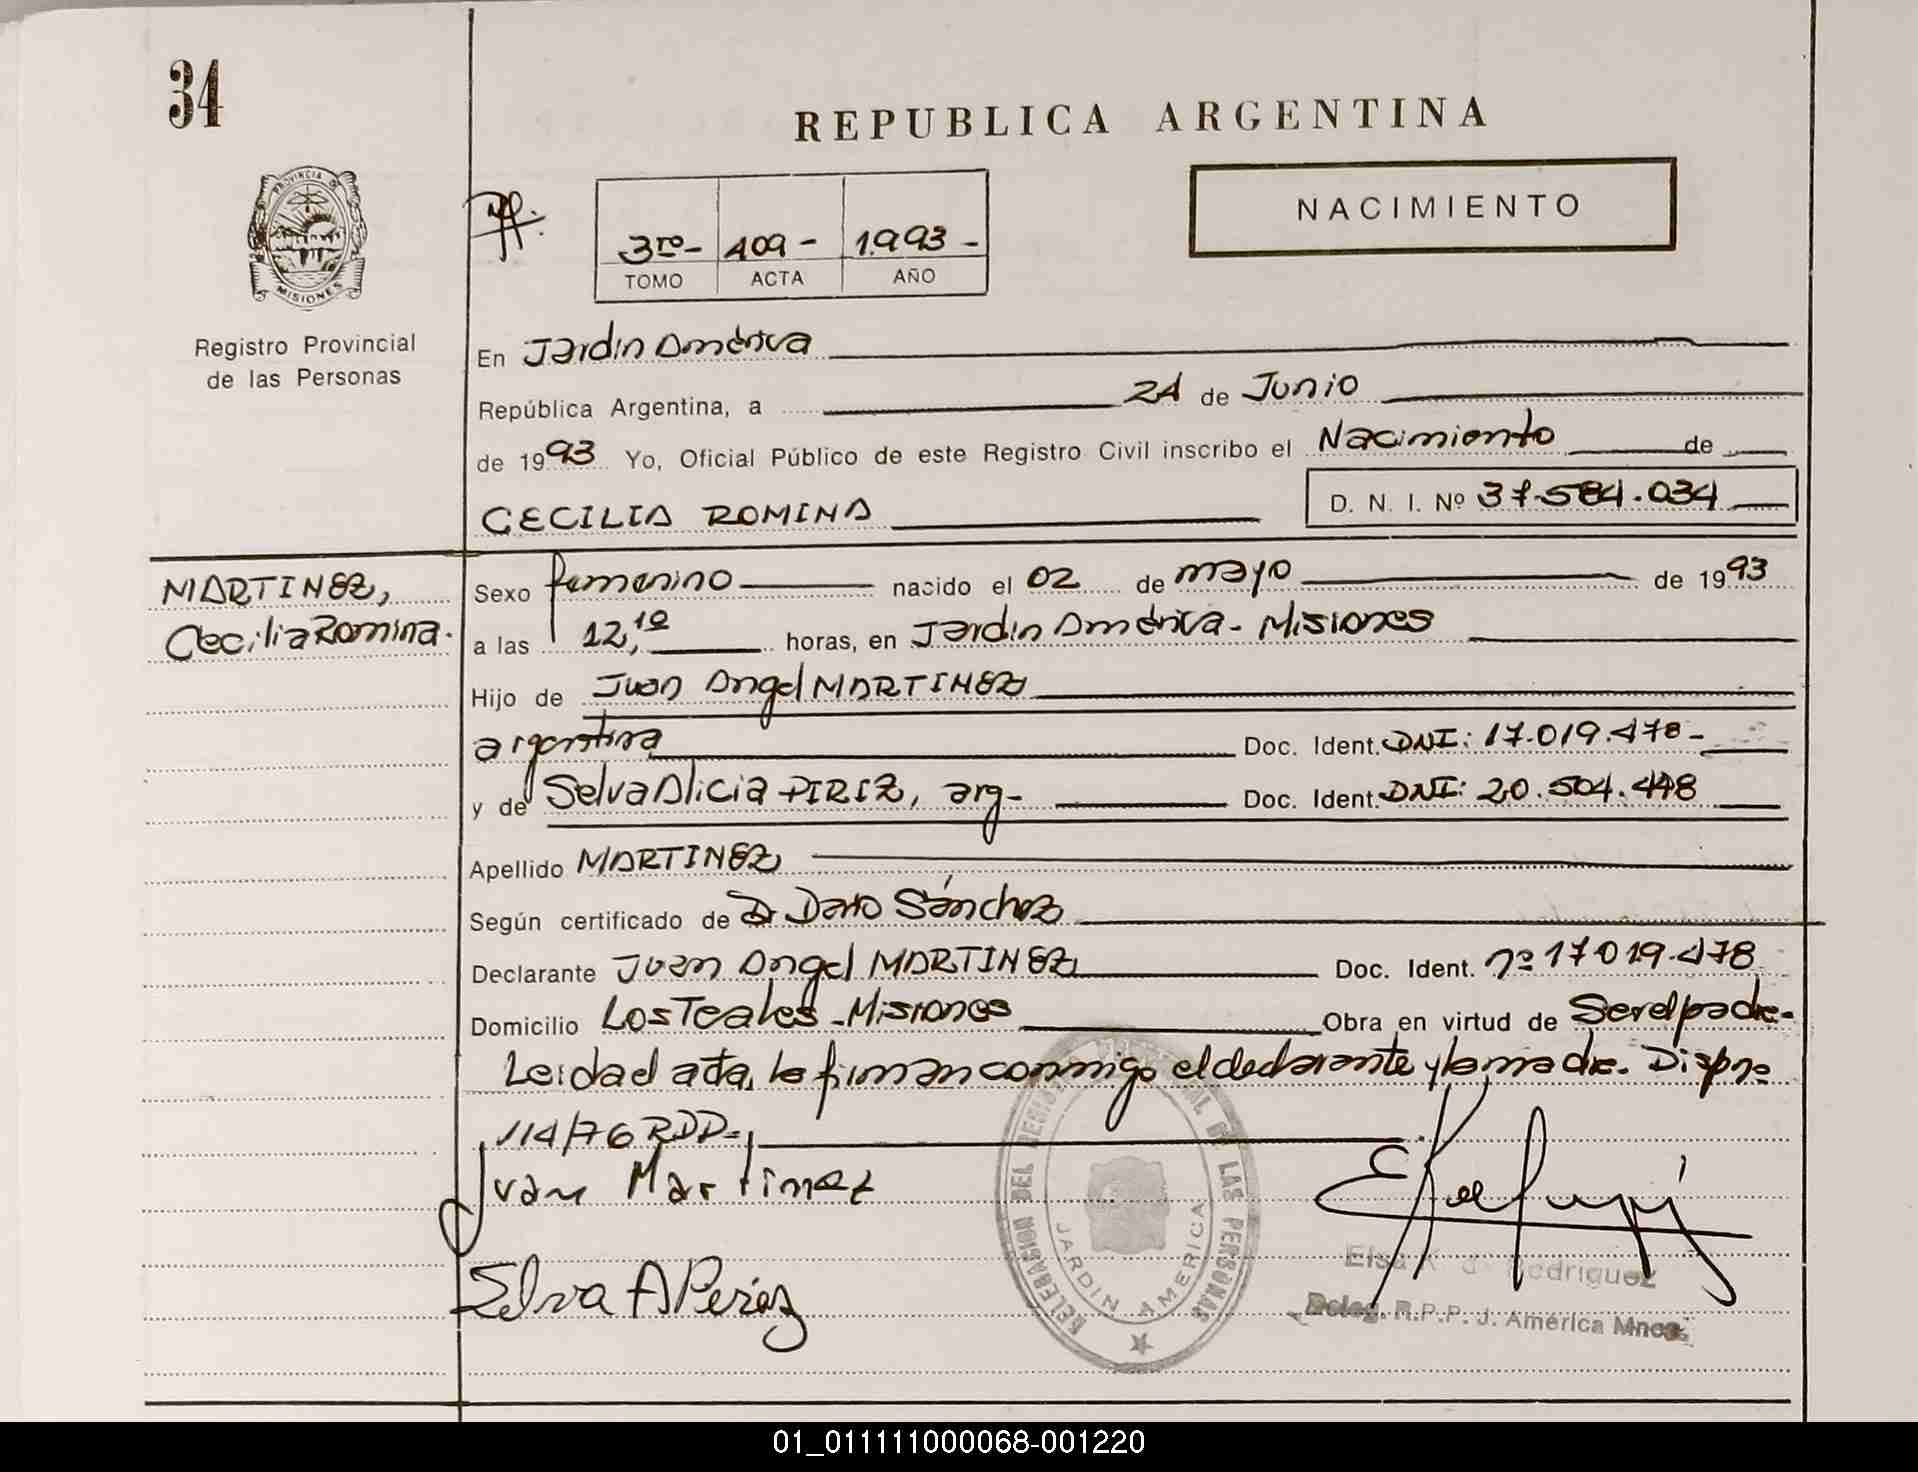 34
REPUBLICA ARGENTINA
PROVINCIA DE
MISIONES
Registro Provincial
de las Personas
3ro- 409- 1.993-
TOMO ACTA AÑO
NACIMIENTO
En Jardin América
República Argentina, a 24 de Junio
de 1993 Yo, Oficial Público de este Registro Civil inscribo el Nacimiento de
CECILIA ROMINA D. N. I. Nº 37.584.034
MARTINEZ,
Cecilia Romina.
Sexo femenino nacido el 02 de mayo de 1993
a las 12,10 horas, en Jardin América - Misiones
Hijo de Juan Angel MARTINEZ
argentina Doc. Ident. DNI: 17.019.478-
y de Selva Alicia PIRIZ, arg- Doc. Ident. DNI: 20.504.448
Apellido MARTINEZ
Según certificado de Dr Sánchez
Declarante Juan Angel MARTINEZ Doc. Ident. nº 17019.478
Domicilio Los Teales - Misiones Obra en virtud de Ser el padre-
Leida el acta, la firman conmigo el declarante y la madre. Dispnº
114/76 RDD-
Juan Martinez
Selva A Periez
DELEGACION DEL REGISTRO PROVINCIAL DE LAS PERSONAS
JARDIN AMERICA
Elsa K de Rodriguez
Deleg. R.P.P. J. América Mnes.
01_011111000068-001220